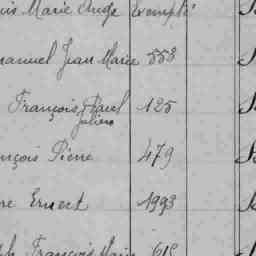 uis Marie Ange Exempté
manuel Jean Marie 553
François Paul 125
Julien
nçois Pierre 479
re Ernest 1993
ph François Marie 615